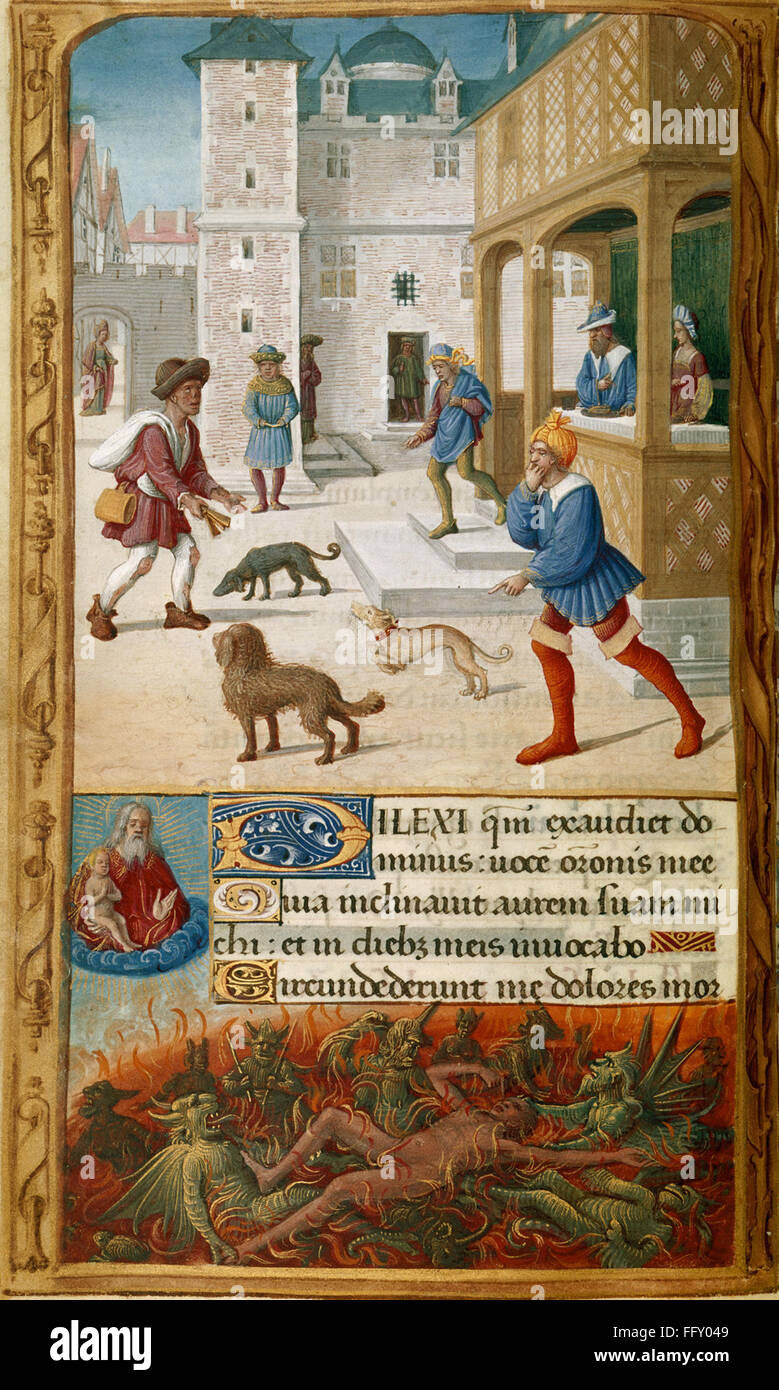 DILEXI qm exaudiet do-
minus: uocē orōnis mee
Quia inclinauit aurem suam mi
chi: et in diebꝫ meis inuocabo
Circundederunt me dolores mor
a
alamy stock photo
FFY049
www.alamy.com